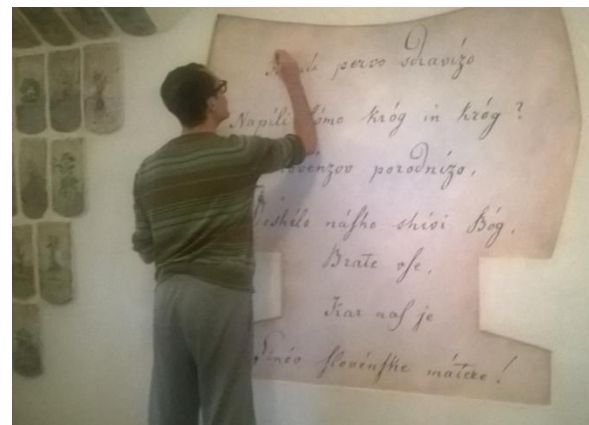 pervo sdravízo
Napíli bómo króg in króg ?
porodnízo,
Deshélo náſho shívi Bóg,
Brate vſe,
Kar naſ je
Sinóv ſlovénſke mátere !